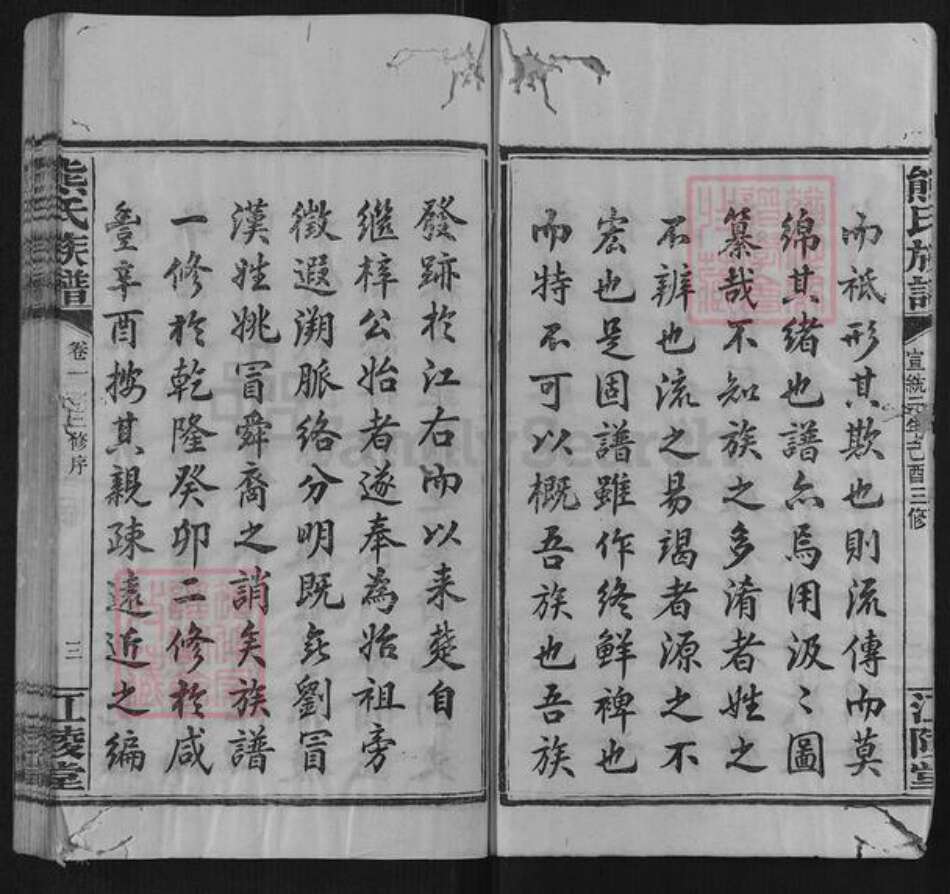 熊氏族譜
宣統元年己酉三修
江陵堂
而祇形其欺也則流傳而莫
綿其緒也譜亦焉用汲〻圖
纂哉不知族之多淆者姓之
不辨也流之易竭者源之不
宏也是固譜雖作終鮮裨也
而特不可以概吾族也吾族
發跡於江右而以來楚自
繼梓公始者遂奉為始祖旁
徵遐溯脈絡分明既無劉冒
漢姓姚冒舜裔之誚矣族譜
一修於乾隆癸卯二修於咸
豐辛酉按其親疎遠近之編
熊氏族譜
卷一
三修序
三
江陵堂
FamilySearch